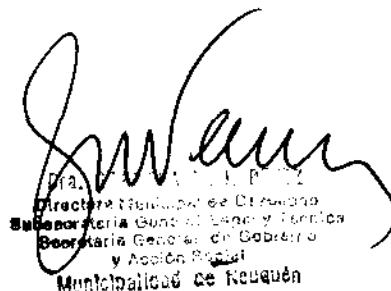 Dra.
Directora Municipal de Despacho
Subsecretaría General Legal y Técnica
Secretaría General de Gobierno
y Acción Social
Municipalidad de Neuquén